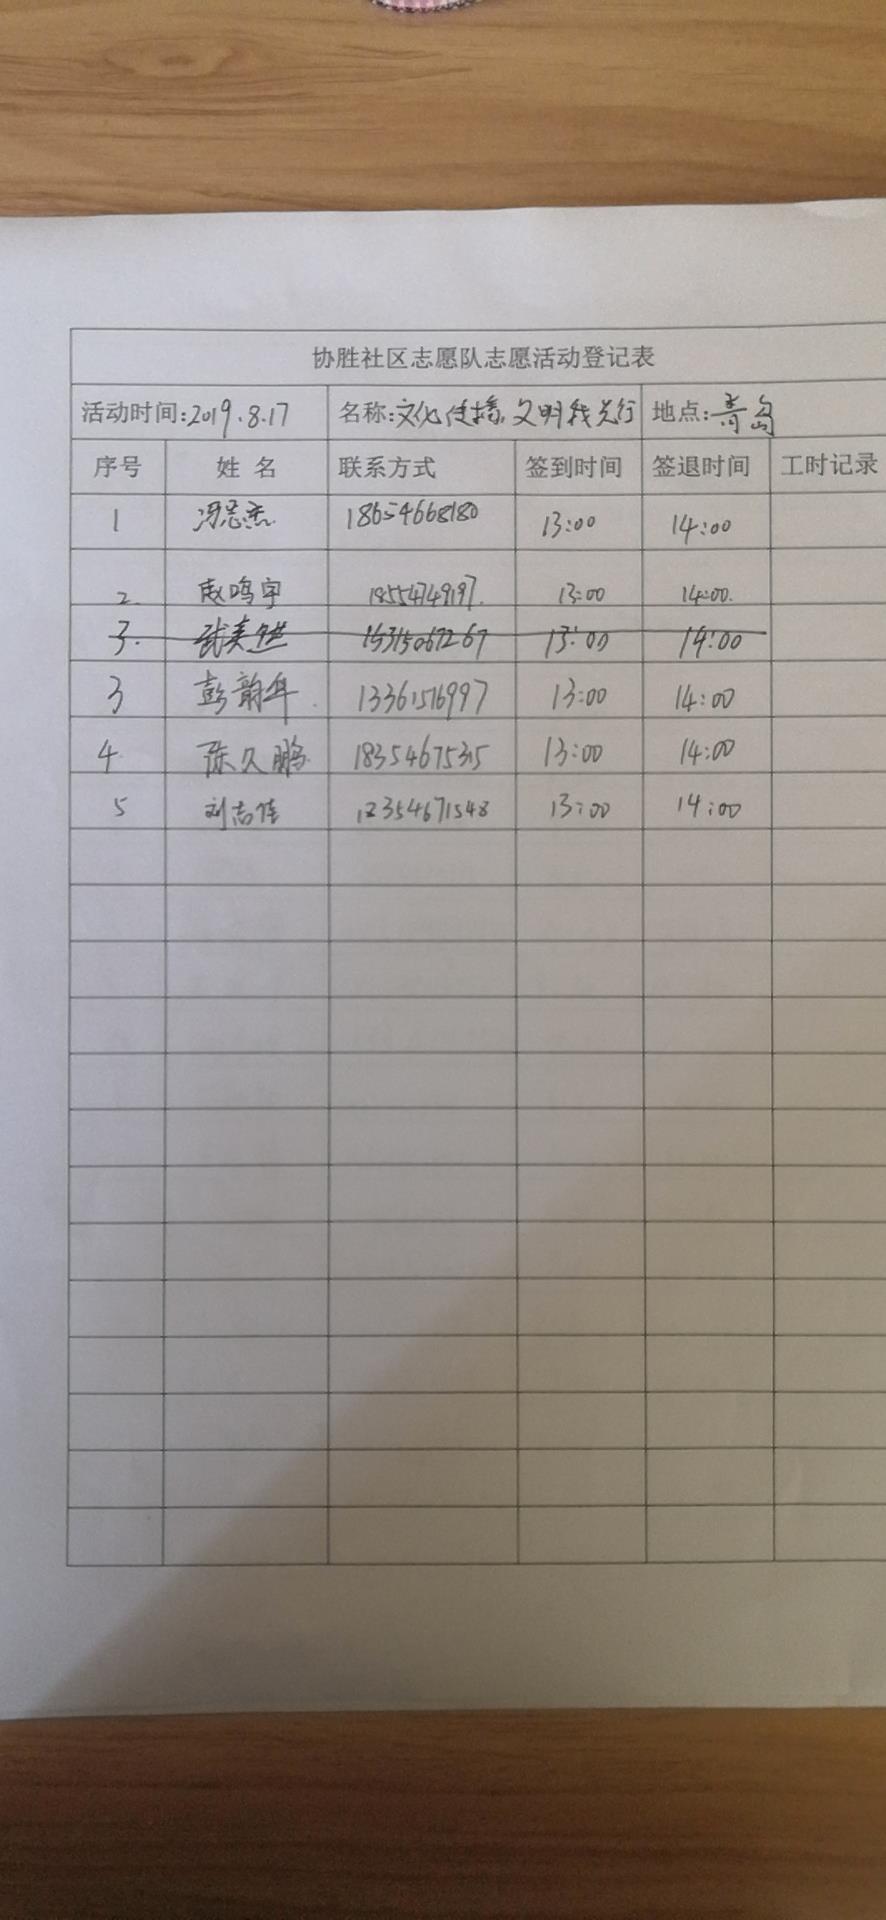 协胜社区志愿队志愿活动登记表
活动时间:2019.8.17 名称:文化传播,文明我先行 地点:青岛
序号 姓名 联系方式 签到时间 签退时间 工时记录
1 18654668180 13:00 14:00
2. 赵鸣宇 18554749197. 13:00 14:00.
3. 15315067267 13:00 14:00
3 彭韵年. 13361576997 13:00 14:00
4. 陈久鹏. 18354675315 13:00 14:00
5 刘志佳 12354671548 13:00 14:00